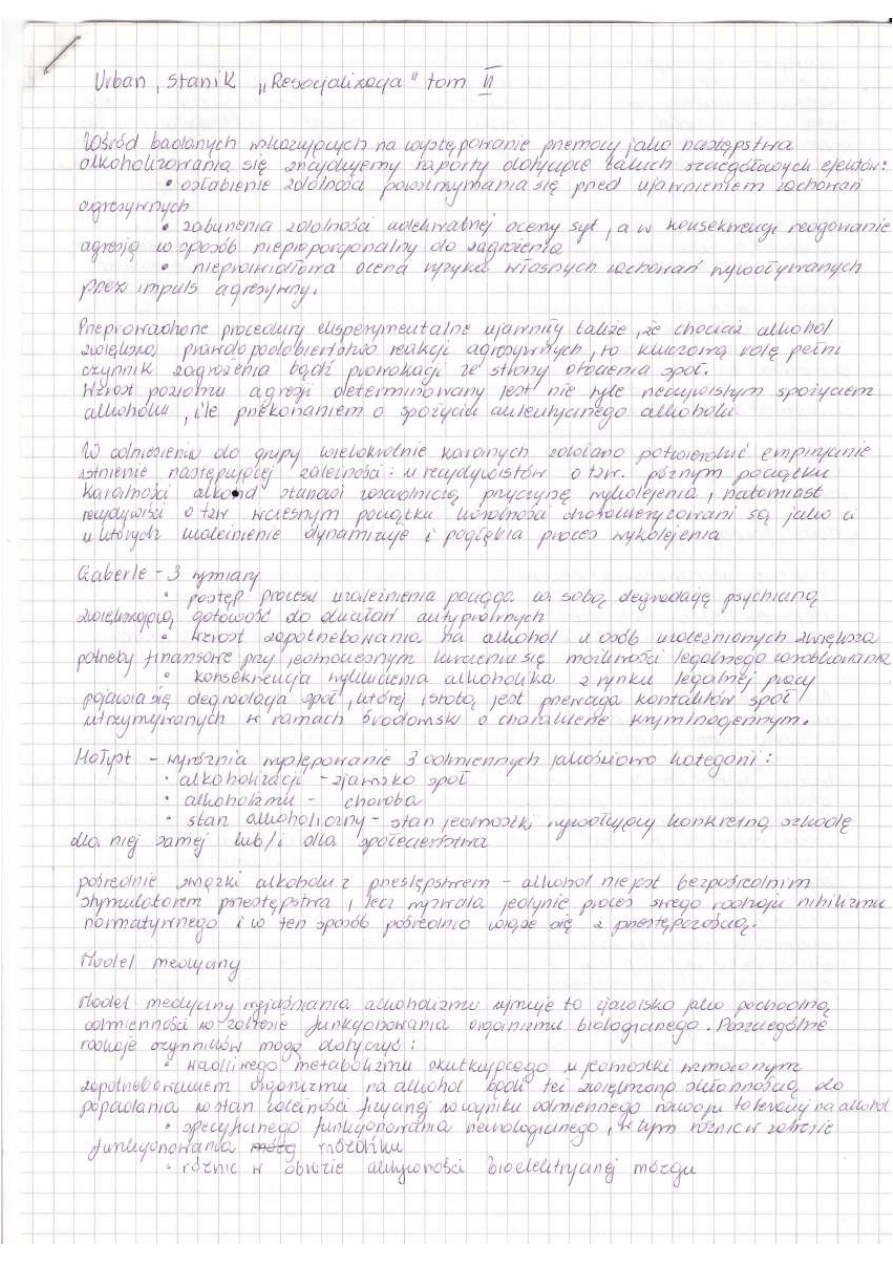 Urban, Stanik „Resocjalizacja" tom II
Wśród badanych wskazujących na występowanie przemocy jako następstwa
alkoholizowania się znajdujemy raporty dotyczące takich szczegółowych efektów:
• osłabienie zdolności powstrzymania się przed ujawnieniem zachowań
agresywnych
• zaburzenia zdolności adekwatnej oceny syt, a w konsekwencji reagowanie
agresją w sposób nieproporcjonalny do zagrożenia
• nieprawidłowa ocena ryzyka własnych zachowań wywoływanych
przez impuls agresywny.
Przeprowadzone procedury eksperymentalne ujawniły także, że chociaż alkohol
zwiększa prawdopodobieństwo reakcji agresywnych, to kluczową rolę pełni
czynnik zagrożenia bądź prowokacji ze strony otoczenia społ.
Wzrost poziomu agresji determinowany jest nie tyle rzeczywistym spożyciem
alkoholu, ile przekonaniem o spożyciu autentycznego alkoholu.
W odniesieniu do grupy wielokrotnie karanych zdołano potwierdzić empirycznie
istnienie następującej zależności: u recydywistów o tzw. późnym początku
karalności alkohol stanowi zasadniczą przyczynę wykolejenia, natomiast
recydywiści o tzw wczesnym początku karalności charakteryzowani są jako ci
u których uzależnienie dynamizuje i pogłębia proces wykolejenia
Gaberle - 3 wymiary
• postęp procesu uzależnienia pociąga za sobą degradację psychiczną
zwiększającą gotowość do działań antyprawnych
• wzrost zapotrzebowania na alkohol u osób uzależnionych zwiększa
potrzeby finansowe przy jednoczesnym kurczeniu się możliwości legalnego zarobkowania
• konsekwencją wykluczenia alkoholika z rynku legalnej pracy
pojawia się degradacja społ, której istotą jest przewaga kontaktów społ
utrzymywanych w ramach środowisk o charakterze kryminogennym.
Hołyst - wyróżnia występowanie 3 odmiennych jakościowo kategorii:
• alkoholizacji - zjawisko społ
• alkoholizmu - choroba
• stan alkoholiczny - stan jednostki wywołujący konkretną szkodę
dla niej samej lub/i dla społeczeństwa
pośrednie związki alkoholu z przestępstwem - alkohol nie jest bezpośrednim
stymulatorem przestępstwa, lecz wyzwala jedynie proces swego rodzaju nihilizmu
normatywnego i w ten sposób pośrednio wiąże się z przestępczością.
Model medyczny
Model medyczny wyjaśniania alkoholizmu ujmuje to zjawisko jako pochodną
odmienności w zakresie funkcjonowania organizmu biologicznego. Poszczególne
rodzaje czynników mogą dotyczyć:
• wadliwego metabolizmu skutkującego u jednostki wzmożonym
zapotrzebowaniem organizmu na alkohol bądź też zwiększoną skłonnością do
popadania w stan zależności fizycznej w wyniku odmiennego rozwoju tolerancji na alkohol
• specyficznego funkcjonowania neurologicznego, w tym różnic w zakresie
funkcjonowania mózg móżdżku
• różnic w obrazie aktywności bioelektrycznej mózgu